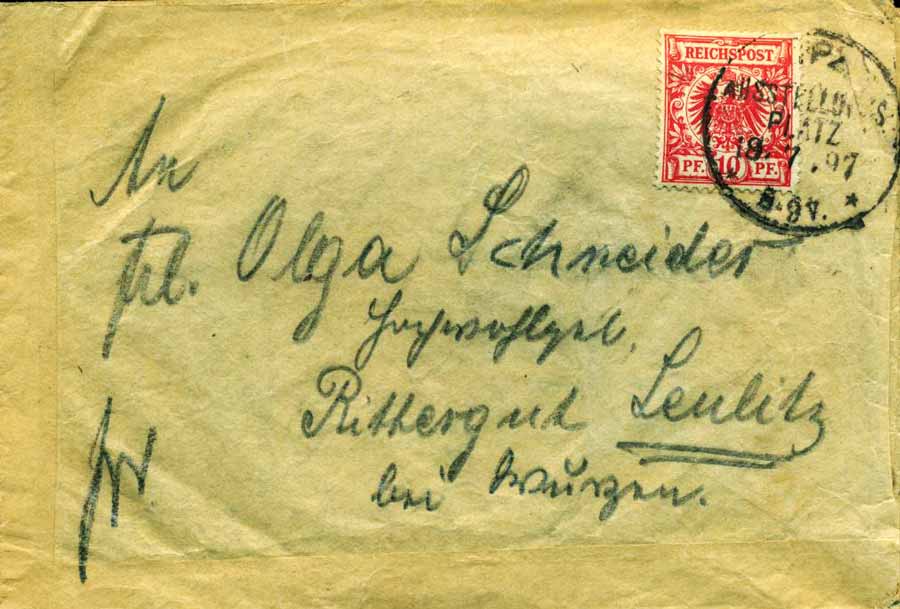 REICHSPOST
PF. 10 PF.
AUSSTELLUNGS
PLATZ
19. 7. 97
An
Frl. Olga Schneider
Hochwohlgeb.
Rittergut Leulitz
bei Wurzen.